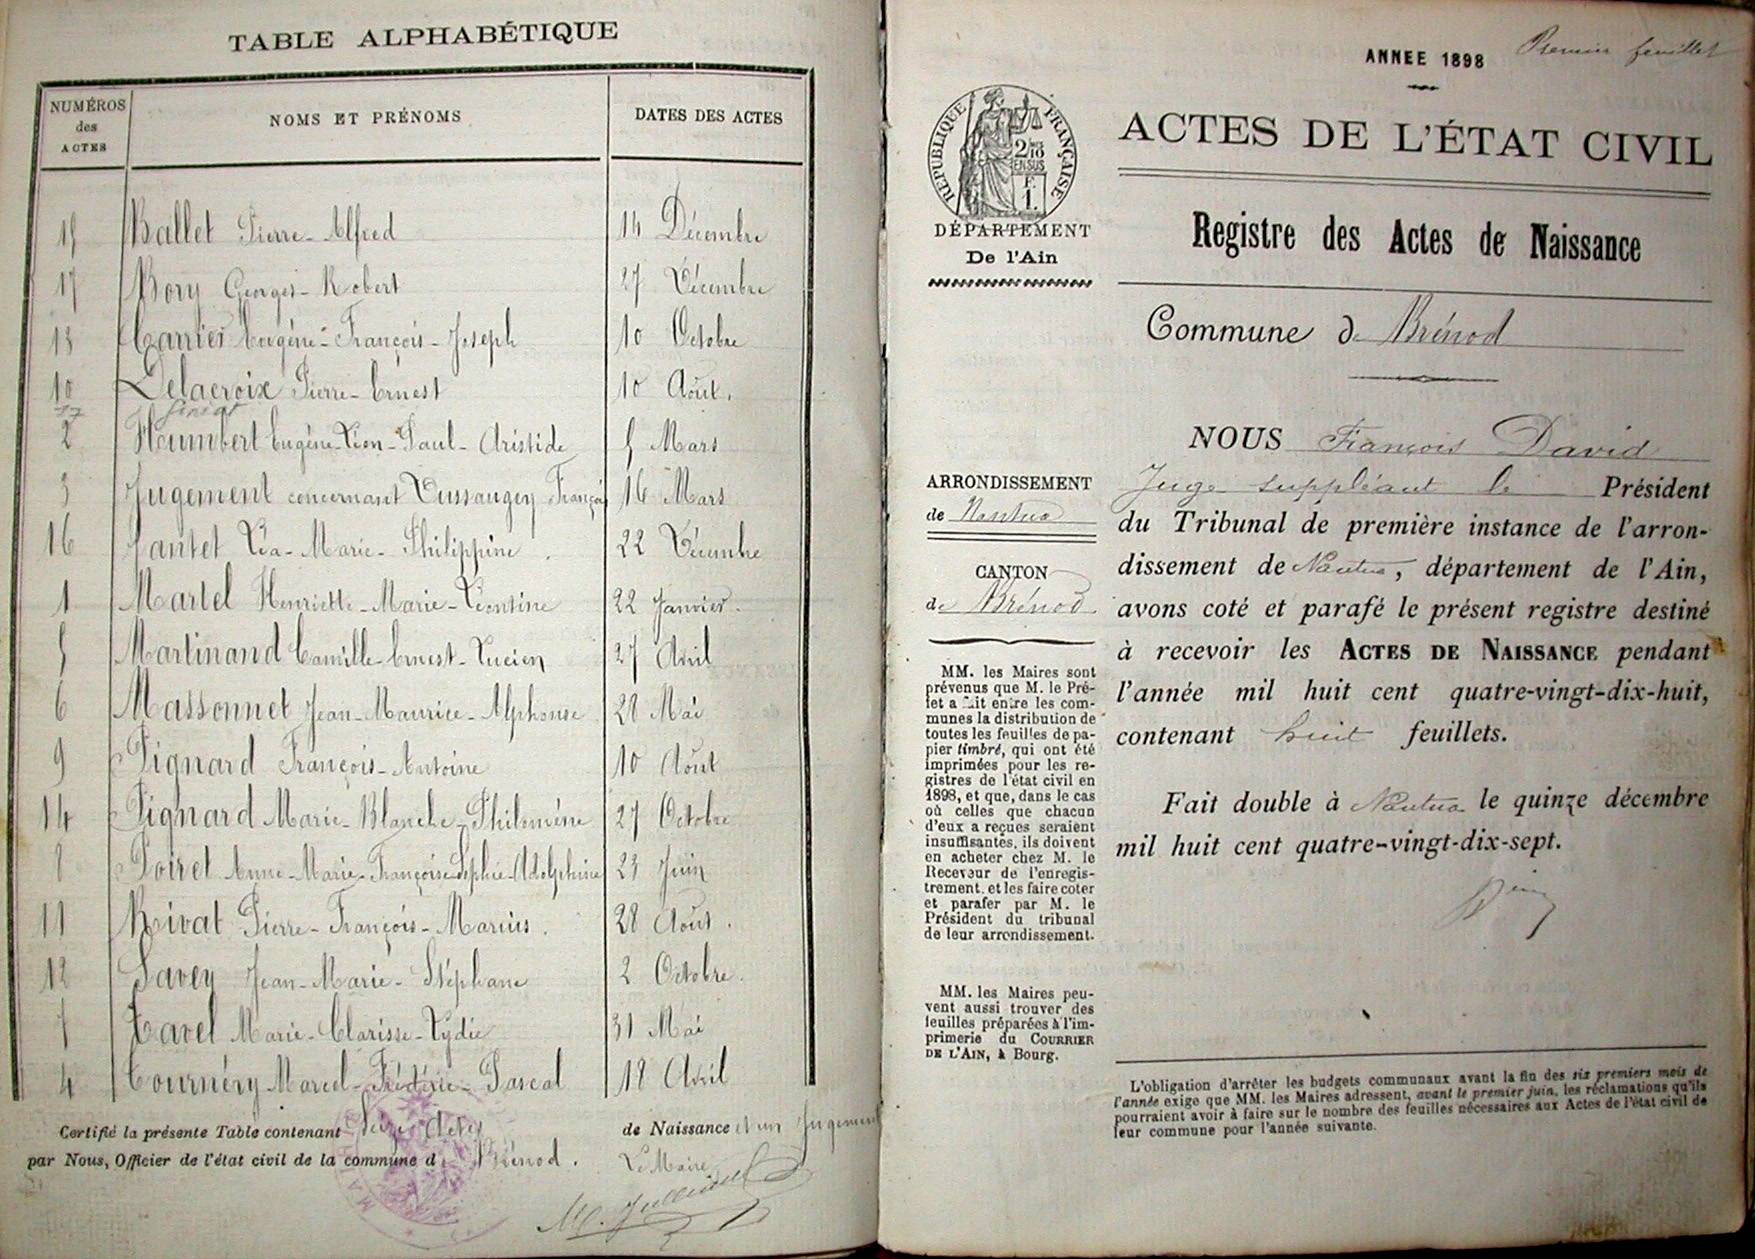 TABLE ALPHABÉTIQUE
NUMÉROS des ACTES
NOMS ET PRÉNOMS
DATES DES ACTES
15 Ballet Pierre-Alfred 14 Décembre
17 Bory Georges-Robert 27 Décembre
13 Carrier Eugène-François-Joseph 10 Octobre
10 Delacroix Pierre-Ernest 10 Août.
2 Humbert Eugène-Léon-Paul-Aristide 5 Mars
3 Jugement concernant Dussaugey Françoi 16 Mars
16 Jantet Léa-Marie-Philippine. 22 Décembre
1 Martel Henriette-Marie-Léontine 22 Janvier.
5 Martinand Camille-Ernest-Lucien 27 Avril
6 Massonnet Jean-Maurice-Alphonse 28 Mai
9 Pignard François-Antoine 10 Août
14 Pignard Marie-Blanche-Philomène 27 Octobre
8 Poiret Anne-Marie-Françoise-Sophie-Adolphine 23 Juin
11 Rivat Pierre-François-Marius. 28 Août.
12 Savey Jean-Marie-Stéphane 2 Octobre.
7 Tavel Marie-Clarisse-Lydie 31 Mai
4 Tournéry Marcel-Frédéric-Pascal 18 Avril
Certifié la présente Table contenant Seize Actes de Naissance et un Jugement
par Nous, Officier de l'état civil de la commune d Brénod.
Le Maire
ANNEE 1898
Premier feuillet
RÉPUBLIQUE FRANÇAISE
2/10 EN SUS
F. 1.
ACTES DE L'ÉTAT CIVIL
DÉPARTEMENT
De l'Ain
Registre des Actes de Naissance
Commune de Brénod
ARRONDISSEMENT
de Nantua
CANTON
de Brénod
MM. les Maires sont
prévenus que M. le Pré-
fet a fait entre les com-
munes la distribution de
toutes les feuilles de pa-
pier timbré, qui ont été
imprimées pour les re-
gistres de l'état civil en
1898, et que, dans le cas
où celles que chacun
d'eux a reçues seraient
insuffisantes, ils doivent
en acheter chez M. le
Receveur de l'enregis-
trement, et les faire coter
et parafer par M. le
Président du tribunal
de leur arrondissement.
MM. les Maires peu-
vent aussi trouver des
feuilles préparées à l'im-
primerie du COURRIER
DE L'AIN, à Bourg.
NOUS François David
Juge suppléant le Président
du Tribunal de première instance de l'arron-
dissement de Nantua, département de l'Ain,
avons coté et parafé le présent registre destiné
à recevoir les ACTES DE NAISSANCE pendant
l'année mil huit cent quatre-vingt-dix-huit,
contenant huit feuillets.
Fait double à Nantua le quinze décembre
mil huit cent quatre-vingt-dix-sept.
L'obligation d'arrêter les budgets communaux avant la fin des six premiers mois de
l'année exige que MM. les Maires adressent, avant le premier juin, les réclamations qu'ils
pourraient avoir à faire sur le nombre des feuilles nécessaires aux Actes de l'état civil de
leur commune pour l'année suivante.